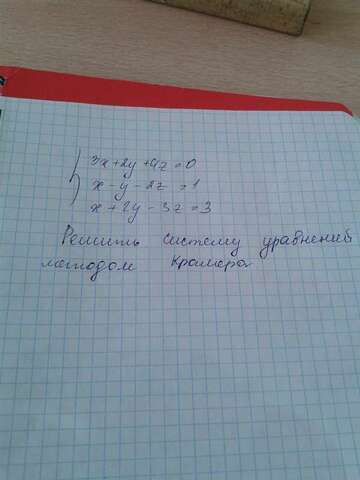 3x+2y+4z=0
x-y-2z=1
x+2y-3z=3
Решить систему уравнений
методом Крамера